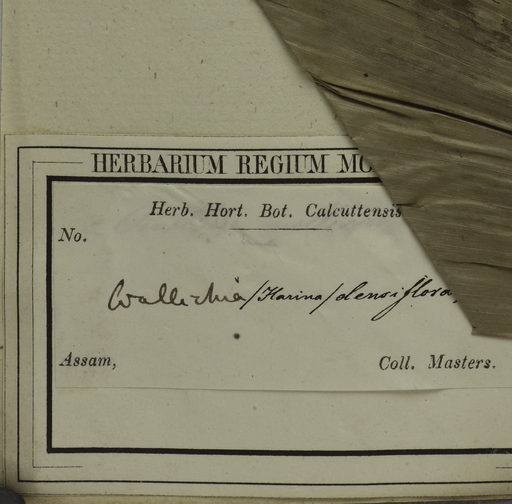 HERBARIUM REGIUM MO
Herb. Hort. Bot. Calcuttensis
No.
Wallichia /Harina/ densiflora,
Assam,
Coll. Masters.